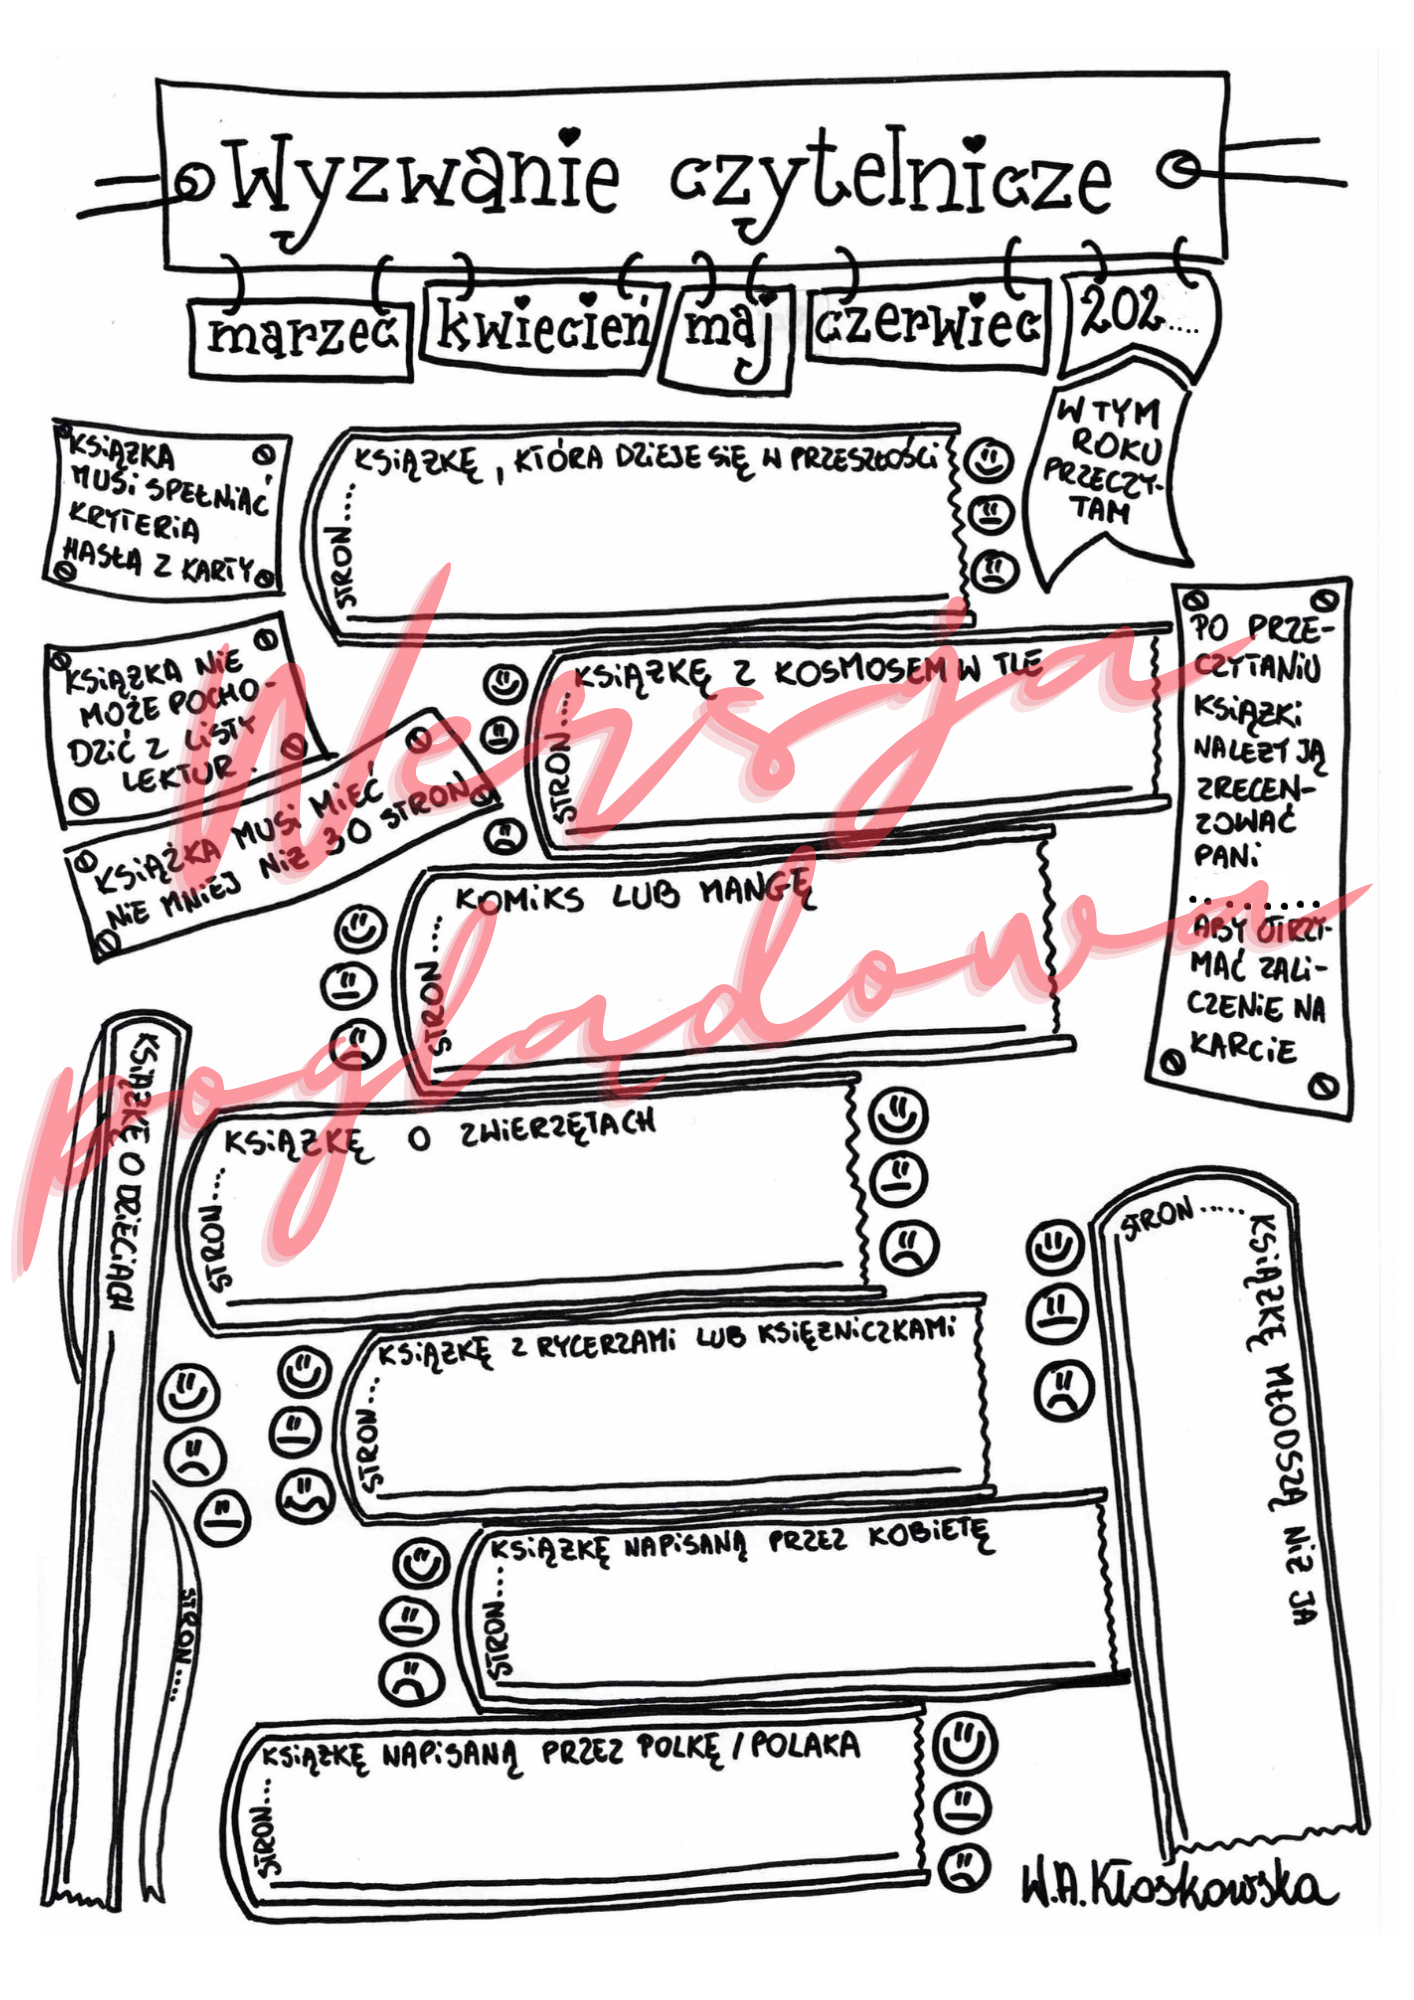 Wyzwanie czytelnicze
marzec kwiecień maj czerwiec 202....
W TYM
ROKU
PRZECZY-
TAM
KSIĄŻKA
MUSI SPEŁNIAĆ
KRYTERIA
HASŁA Z KARTY
KSIĄŻKĘ, KTÓRA DZIEJE SIĘ W PRZESZŁOŚCI
STRON....
KSIĄŻKA NIE
MOŻE POCHO-
DZIĆ Z LISTY
LEKTUR.
KSIĄŻKA MUSI MIEĆ
NIE MNIEJ NIŻ 30 STRON
KSIĄŻKĘ Z KOSMOSEM W TLE
STRON....
PO PRZE-
CZYTANIU
KSIĄŻKI
NALEŻY JĄ
ZRECEN-
ZOWAĆ
PANI
........
ABY OTRZY-
MAĆ ZALI-
CZENIE NA
KARCIE
KOMIKS LUB MANGĘ
STRON....
Wersja
poglądowa
KSIĄŻKĘ O DZIECIACH
STRON....
KSIĄŻKĘ O ZWIERZĘTACH
STRON....
KSIĄŻKĘ MŁODSZĄ NIŻ JA
STRON.....
KSIĄŻKĘ Z RYCERZAMI LUB KSIĘŻNICZKAMI
STRON....
KSIĄŻKĘ NAPISANĄ PRZEZ KOBIETĘ
STRON....
KSIĄŻKĘ NAPISANĄ PRZEZ POLKĘ / POLAKA
STRON...
W.A.Kłoskowska